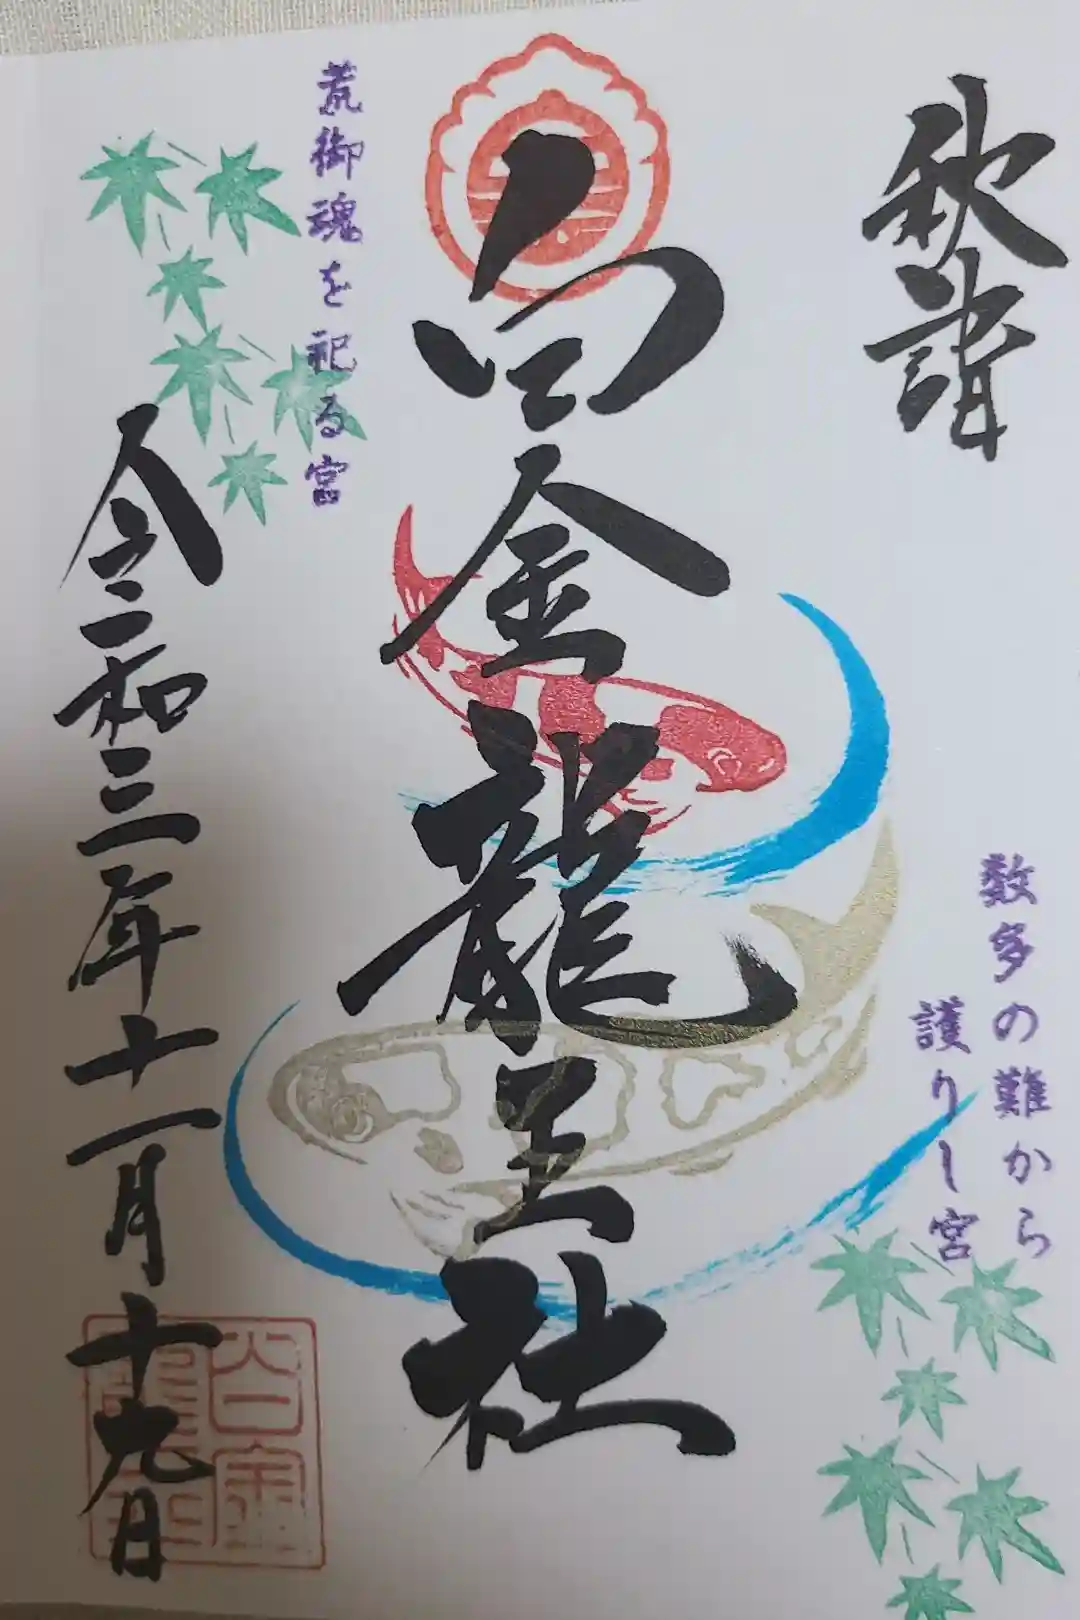 秋詣
数多の難から
護りし宮
白金龍王社
荒御魂を祀る宮
令和三年十一月十九日
白金
龍王